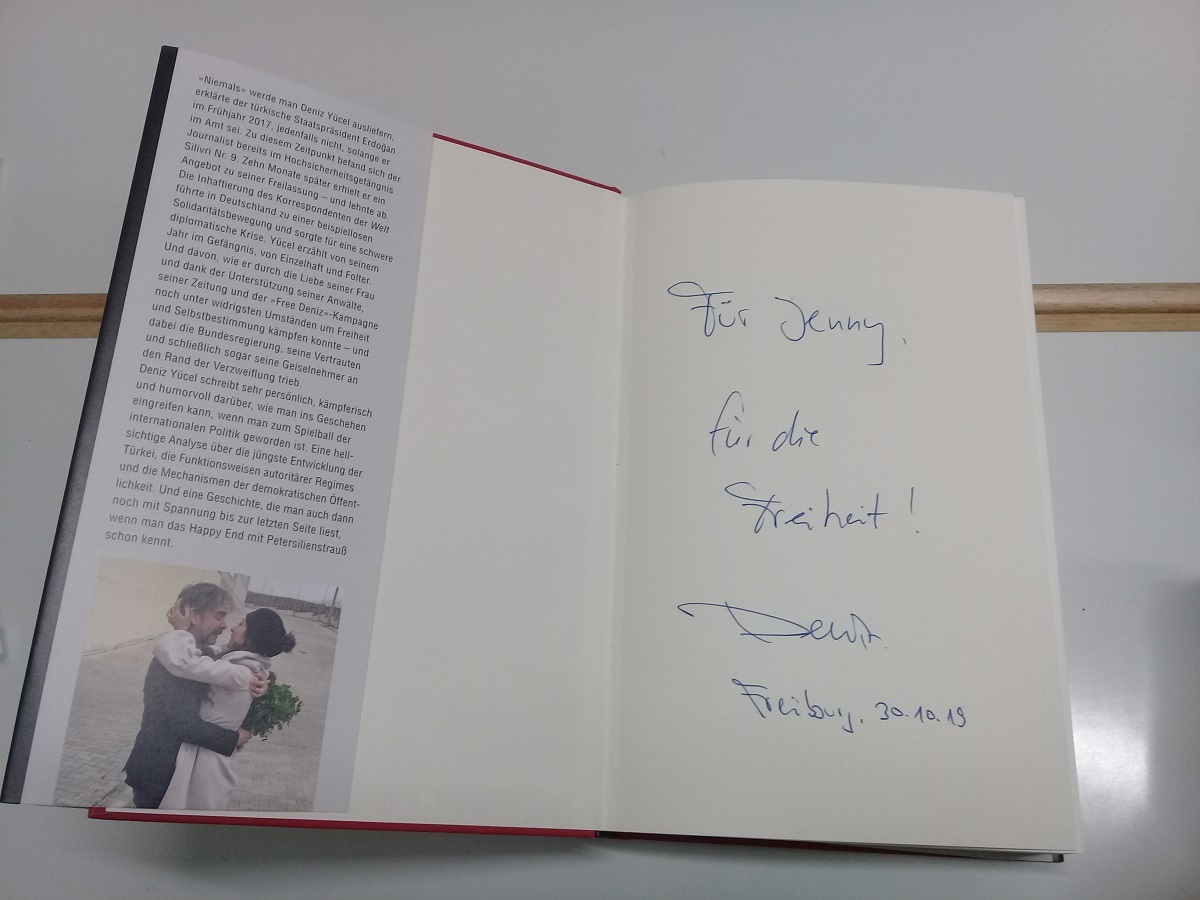 »Niemals« werde man Deniz Yücel ausliefern,
erklärte der türkische Staatspräsident Erdoğan
im Frühjahr 2017, jedenfalls nicht, solange er
im Amt sei. Zu diesem Zeitpunkt befand sich der
Journalist bereits im Hochsicherheitsgefängnis
Silivri Nr. 9. Zehn Monate später erhielt er ein
Angebot zu seiner Freilassung – und lehnte ab.
Die Inhaftierung des Korrespondenten der Welt
führte in Deutschland zu einer beispiellosen
Solidaritätsbewegung und sorgte für eine schwere
diplomatische Krise. Yücel erzählt von seinem
Jahr im Gefängnis, von Einzelhaft und Folter.
Und davon, wie er durch die Liebe seiner Frau
und dank der Unterstützung seiner Anwälte,
seiner Zeitung und der »Free Deniz«-Kampagne
noch unter widrigsten Umständen um Freiheit
und Selbstbestimmung kämpfen konnte – und
dabei die Bundesregierung, seine Vertrauten
und schließlich sogar seine Geiselnehmer an
den Rand der Verzweiflung trieb.
Deniz Yücel schreibt sehr persönlich, kämpferisch
und humorvoll darüber, wie man ins Geschehen
eingreifen kann, wenn man zum Spielball der
internationalen Politik geworden ist. Eine hell-
sichtige Analyse über die jüngste Entwicklung der
Türkei, die Funktionsweisen autoritärer Regimes
und die Mechanismen der demokratischen Öffent-
lichkeit. Und eine Geschichte, die man auch dann
noch mit Spannung bis zur letzten Seite liest,
wenn man das Happy End mit Petersilienstrauß
schon kennt.
Für Jenny,
für die
Freiheit!
Deniz
Freiburg, 30.10.19